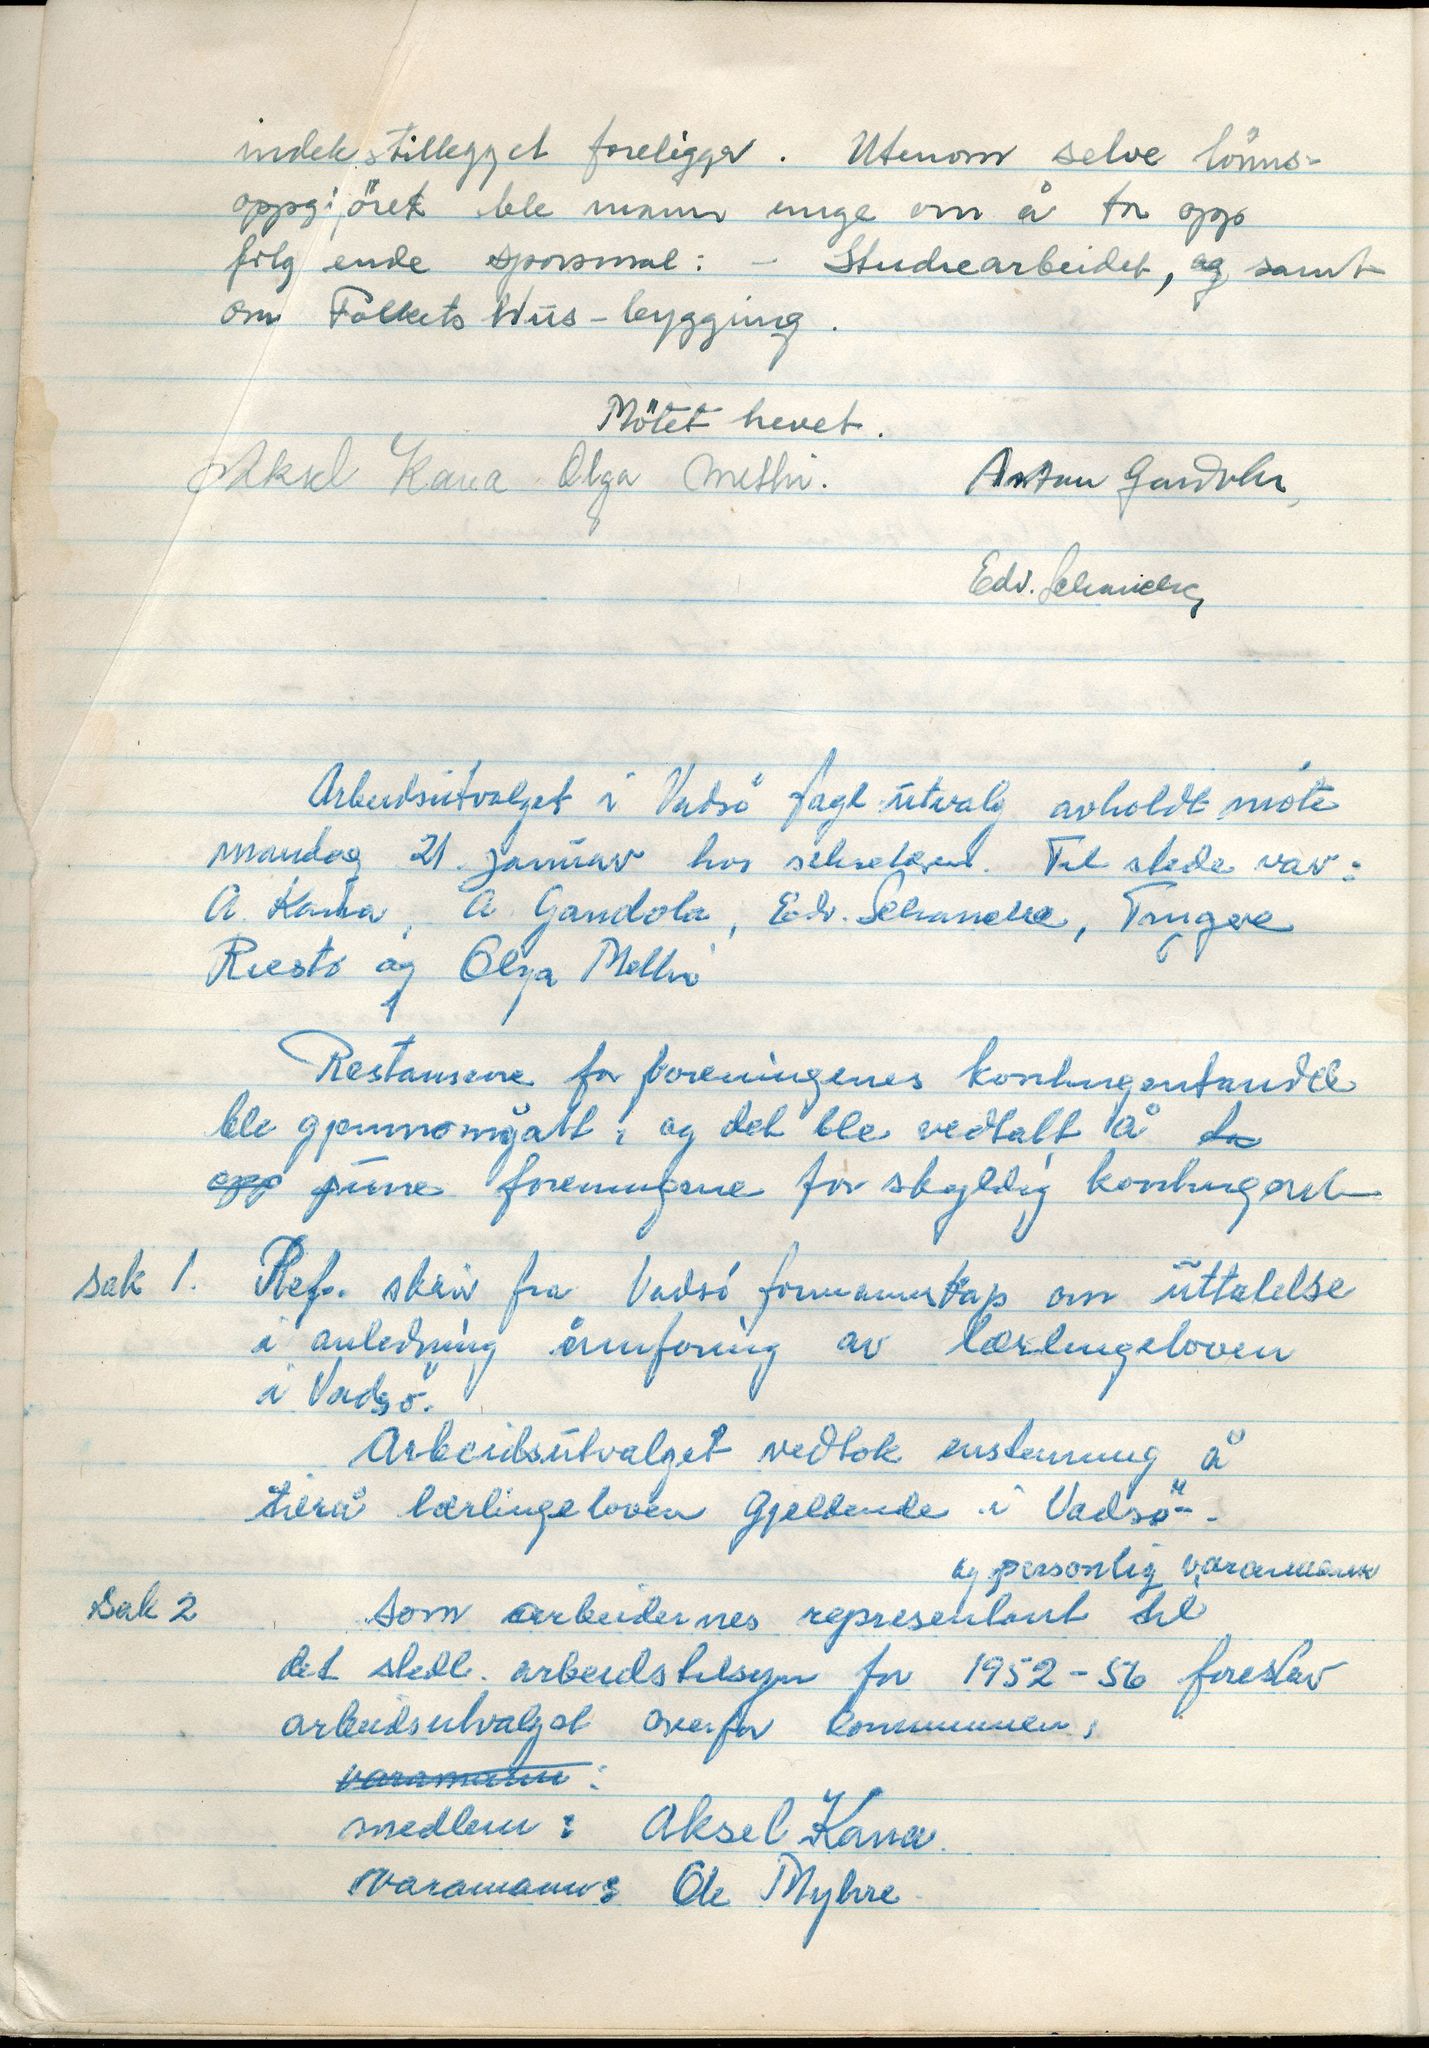 indekstillegget foreligger. Utenom selve lönns-
oppgjöret ble man enige om å ta opp
fölgende sporsmal: - Studiearbeidet, og samt
om Folkets Hüs-bygging.
Mötet hevet.
Aksel Kana Olga Methi. Anton Gandola,
Edv. Schancke
Arbeidsütvalget i Vadsö fagl. ütvalg avholdt möte
mandag 21. janüar hos sekretæren. Til stede var:
A. Kana, A. Gandola, Edv. Schancke, Trygve
Riesto og Olga Methi
Restansene for foreningenes kontingentandel
ble gjennomgått, og det ble vedtatt å ta
opp püre foreningene for skyldig kontingent
sak 1. Ref. skriv fra Vadsö formannskap om üttalelse
i anledning innforing av lærlingeloven
i Vadsö.
Arbeidsütvalget vedtok enstemmig å
lærlingeloven gjeldende i Vadsö-.
og personlig varamann
Sak 2 Som arbeidernes representant til
det stedl. arbeidstilsyn for 1952-56 foreslår
arbeidsutvalget overfor kommunen:
varamann:
medlem: Aksel Kana.
Varamann: Ole Myhre